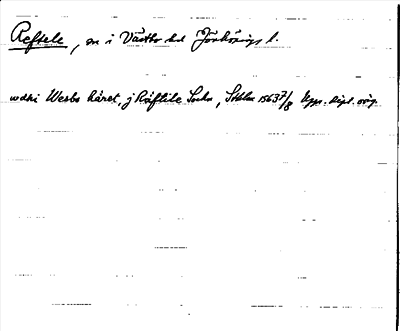 Reftele, sn i Västbo hd Jönköpings l.
wdhi Wesbo häret, j Räftile Sochn, Sthlm 1563 7/8 Upps. dipl. orig.